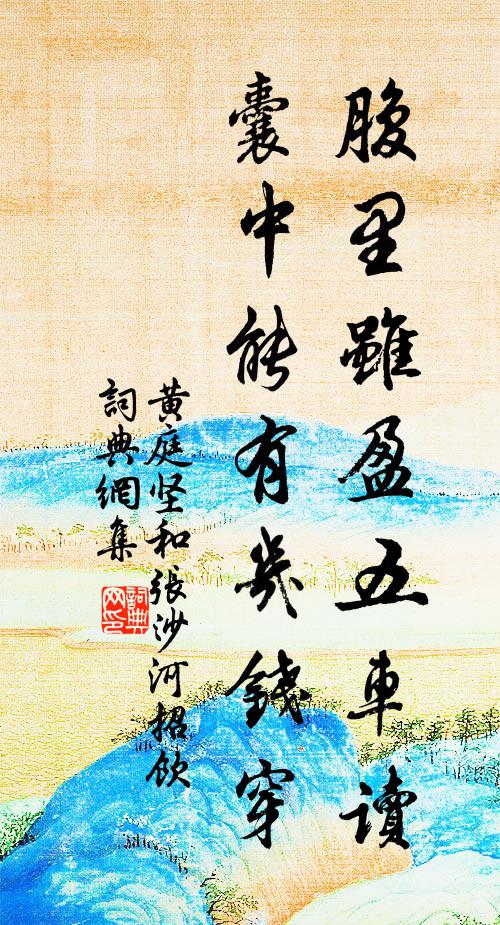 腹里雖盈五車讀
囊中能有幾錢穿
黄庭坚和張沙河招飲
詞典網集
詞典網印